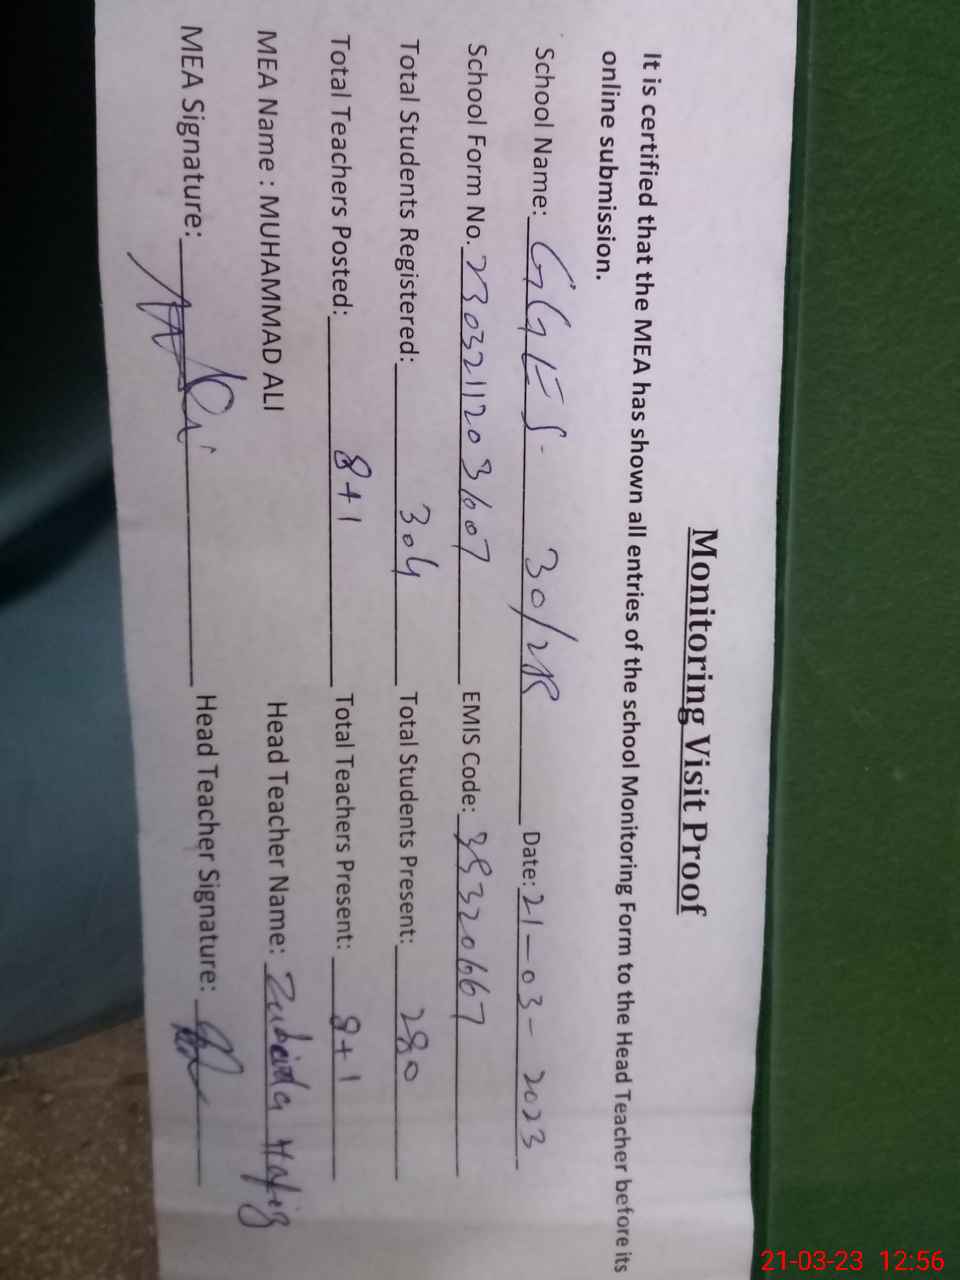 Monitoring Visit Proof
It is certified that the MEA has shown all entries of the school Monitoring Form to the Head Teacher before its
online submission.
School Name: GGES 30/2R Date: 21-03-2023
School Form No. 230321120 3607 EMIS Code: 35320667
Total Students Registered: 304 Total Students Present: 280
Total Teachers Posted: 8+1 Total Teachers Present: 8+1
MEA Name : MUHAMMAD ALI Head Teacher Name: Zubaida Hafiz
MEA Signature: Head Teacher Signature:
21-03-23 12:56